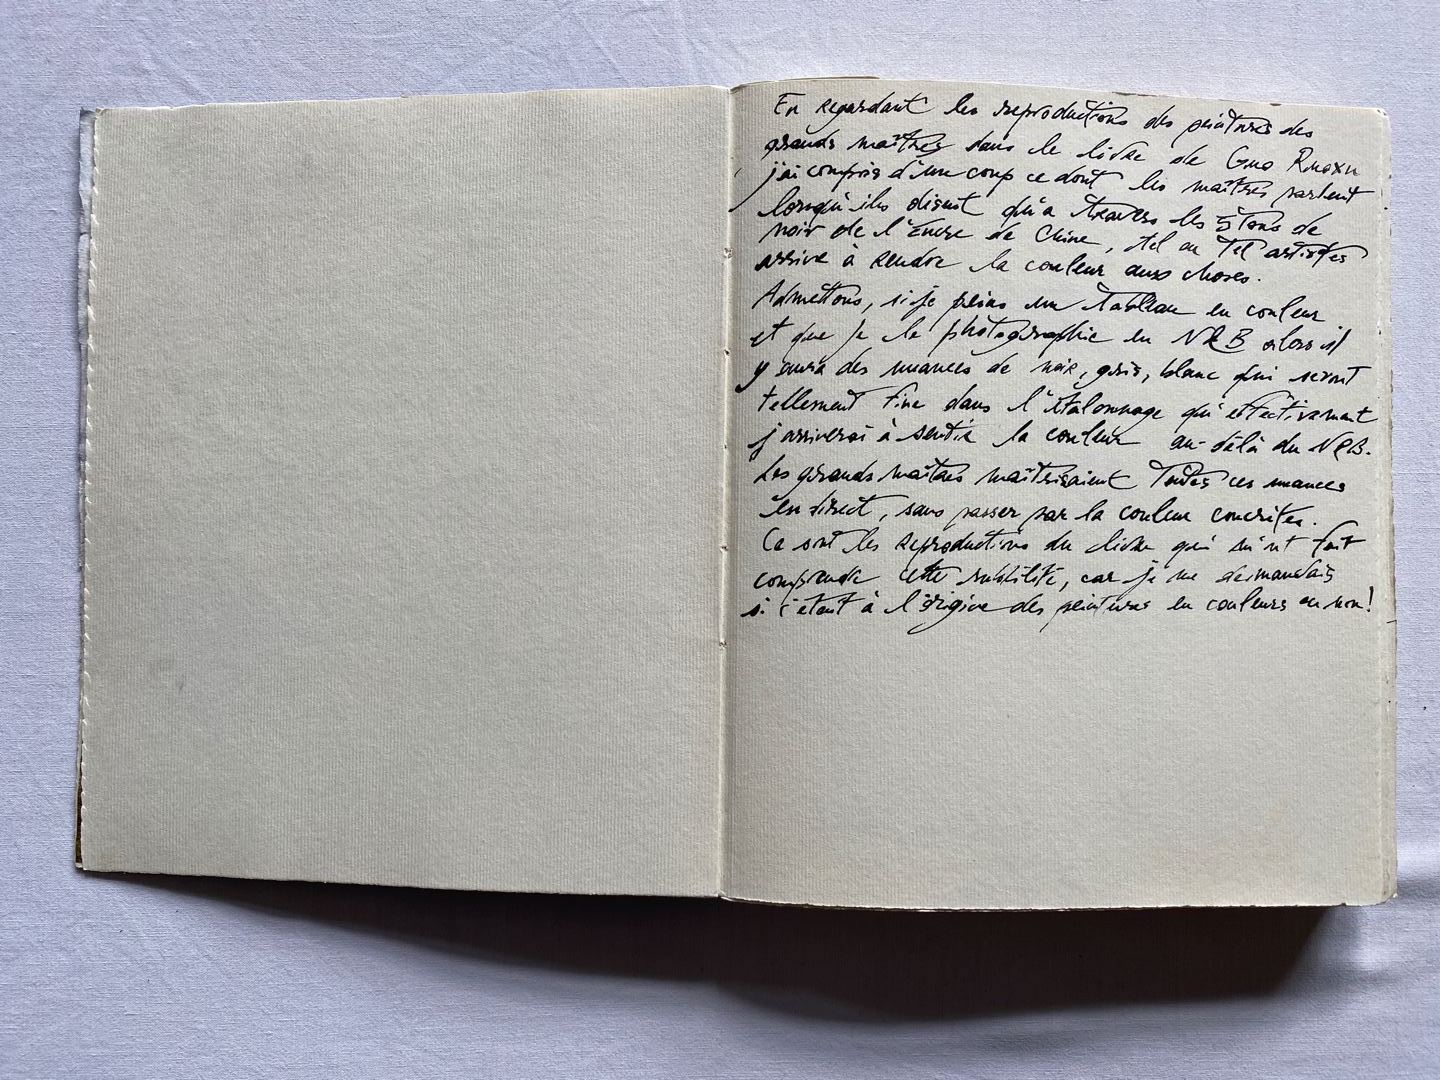 En regardant les reproductions des peintures des
grands maîtres dans le livre de Guo Ruoxu
j'ai compris d'un coup ce dont les maîtres parlent
lorsqu'ils disent qu'a travers les 5 tons de
noir de l'Encre de Chine, tel ou Tel artistes
arrive à rendre la couleur aux choses.
Admettons, si je peins un Tableau en couleur
et que je le photographie en N&B alors il
y aura des nuances de noir, gris, blanc qui seront
tellement fine dans l'étalonnage qu'effectivement
j'arriverai à sentir la couleur au-délà du N&B.
Les grands maîtres maîtrisaient Toutes ces nuances
en direct, sans passer par la couleur concrètes.
Ce sont les reproductions du livre qui m'ont fait
comprendre cette subtilité, car je me demandais
si c'étaut à l'origine des peintures en couleurs ou non!